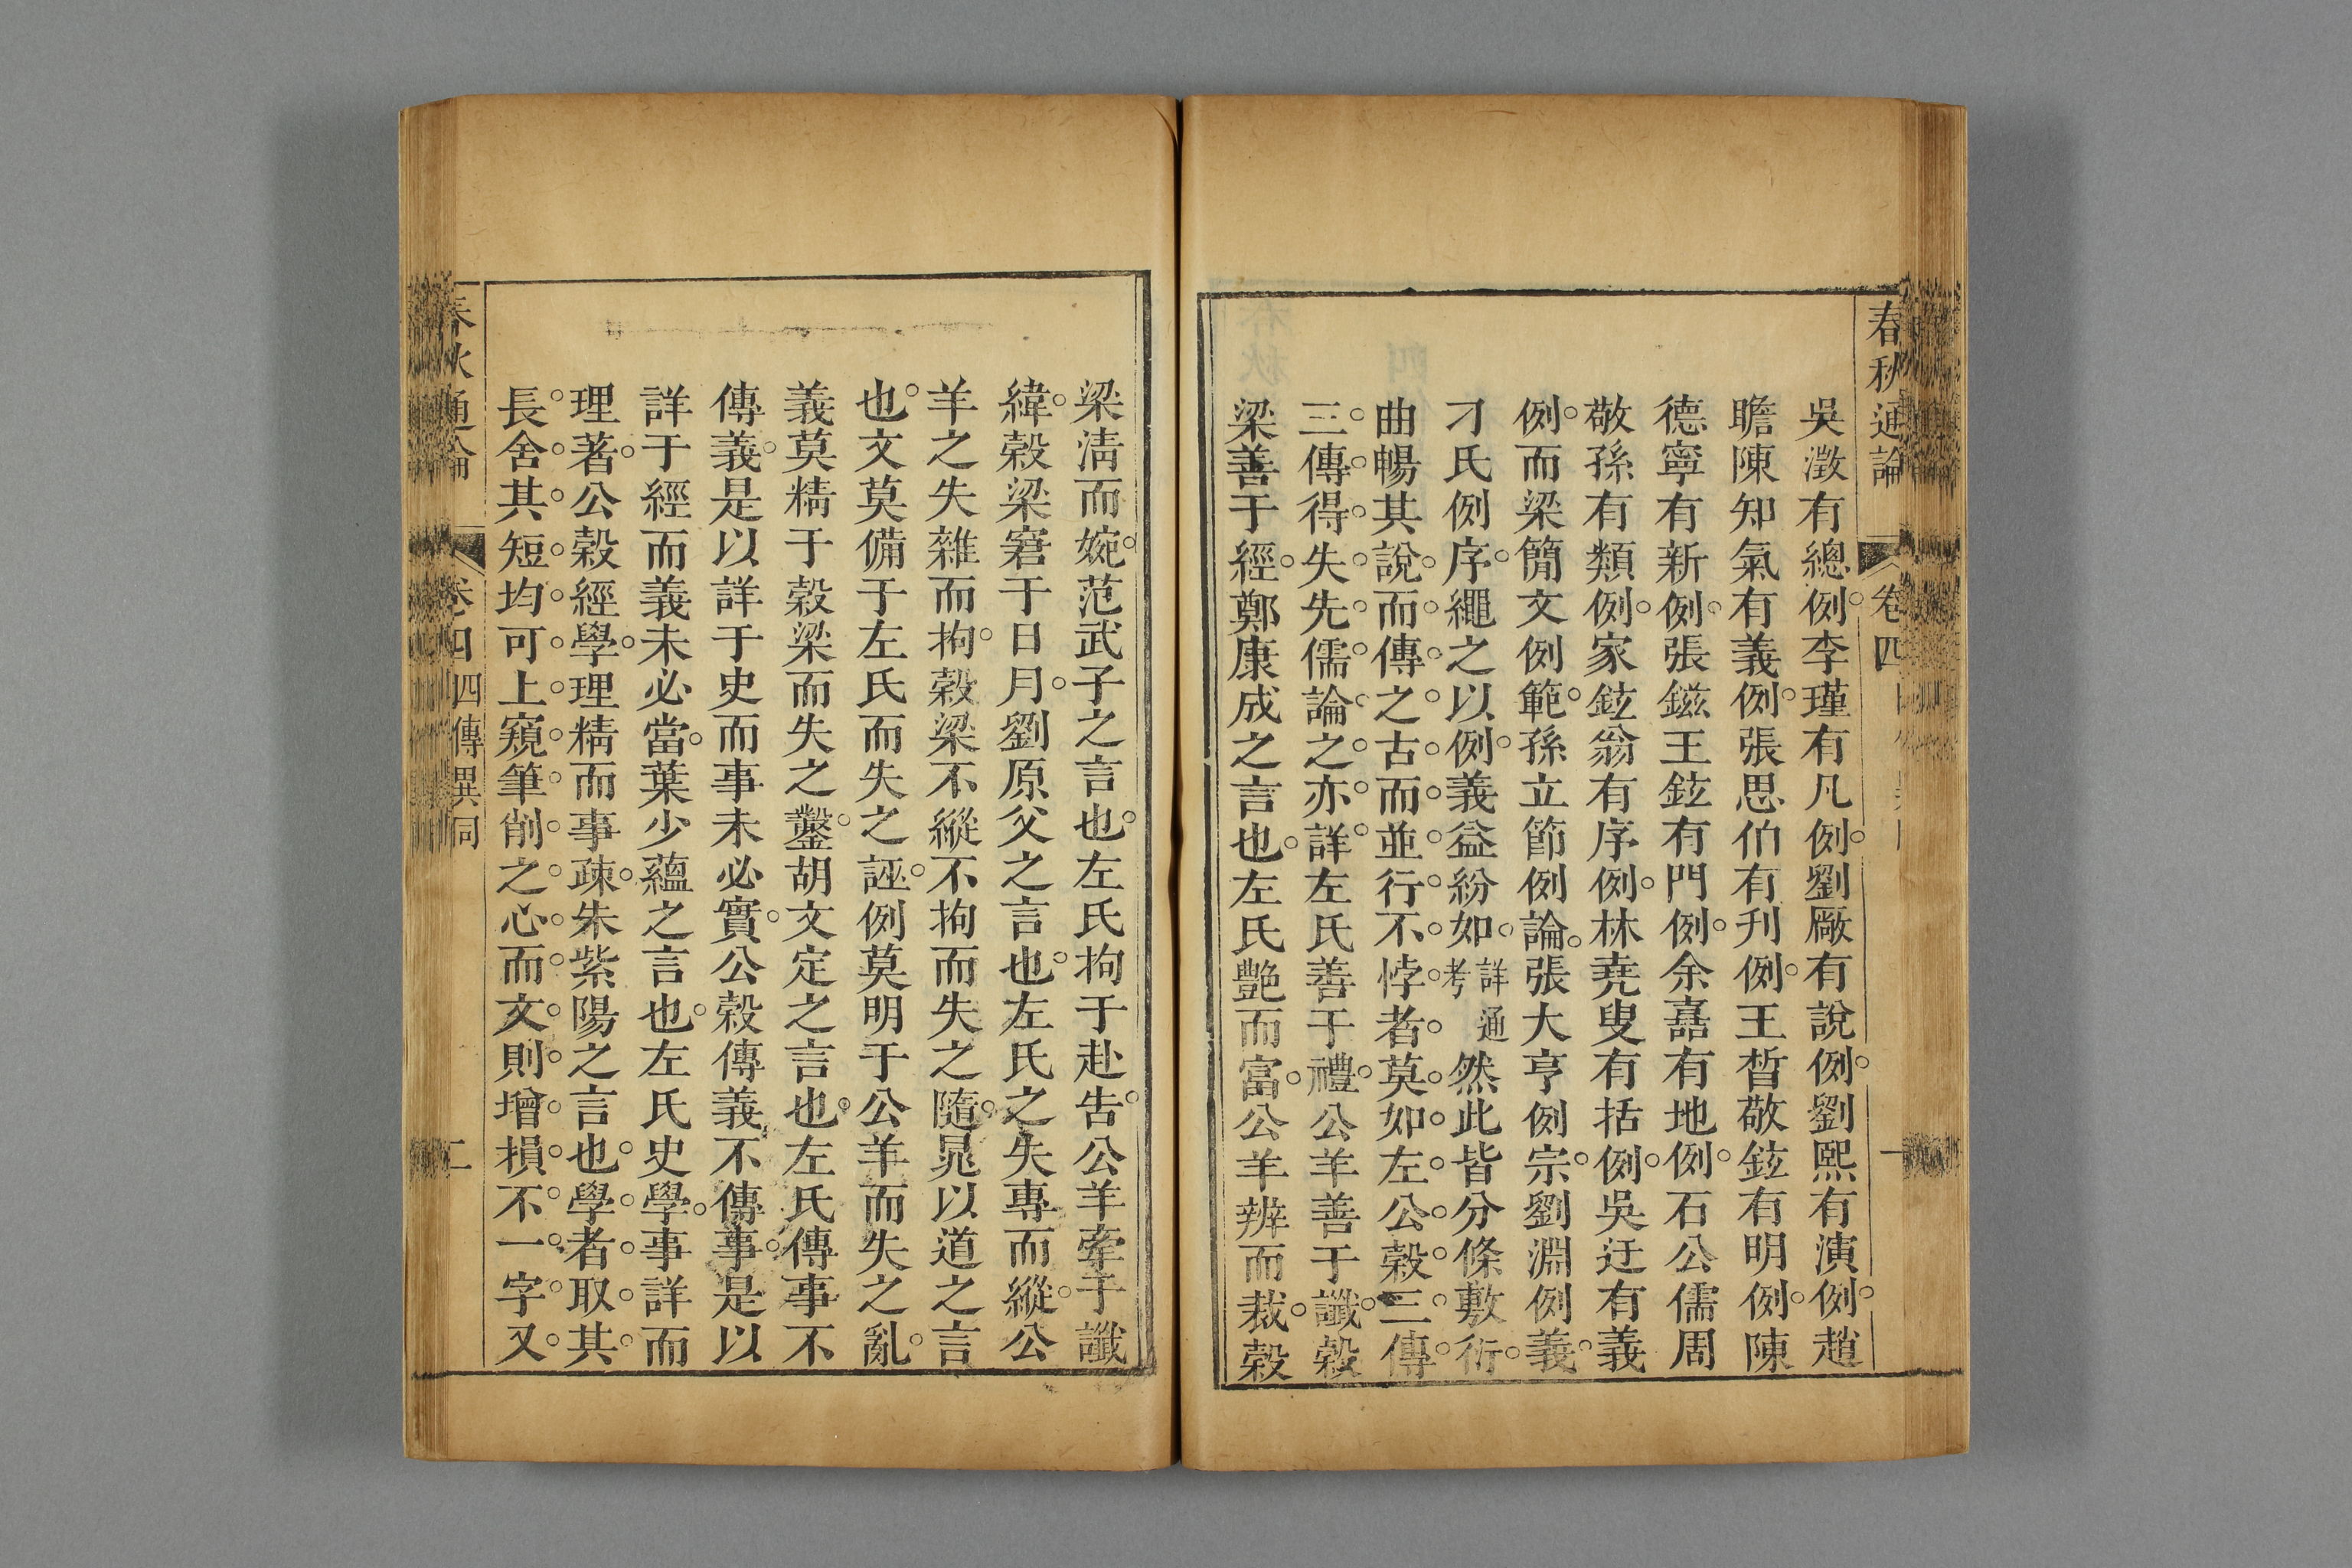 春秋通論 卷四 一
吳澂有總例李瑾有凡例劉厰有說例劉熙有演例趙
瞻陳知氣有義例張思伯有刋例王晳敬鉉有明例陳
德寧有新例張鎡王鉉有門例余嚞有地例石公儒周
敬孫有類例家鉉翁有序例林堯叟有括例吳迂有義
例而梁簡文例範孫立節例論張大亨例宗劉淵例義
刁氏例序繩之以例義益紛如詳通考然此皆分條敷衍
曲暢其說而傳之古而並行不悖者莫如左公穀三傳
三傳得失先儒論之亦詳左氏善于禮公羊善于讖穀
梁善于經鄭康成之言也左氏艷而富公羊辨而裁穀
梁淸而婉范武子之言也左氏拘于赴告公羊牽于讖
緯穀梁窘于日月劉原父之言也左氏之失專而縱公
羊之失雜而拘穀梁不縱不拘而失之隨晁以道之言
也文莫備于左氏而失之誣例莫明于公羊而失之亂
義莫精于穀梁而失之鑿胡文定之言也左氏傳事不
傳義是以詳于史而事未必實公穀傳義不傳事是以
詳于經而義未必當葉少蘊之言也左氏史學事詳而
理著公穀經學理精而事疎朱紫陽之言也學者取其
長舍其短均可上窺筆削之心而文則增損不一字又
春秋通論 卷四 四傳異同 二